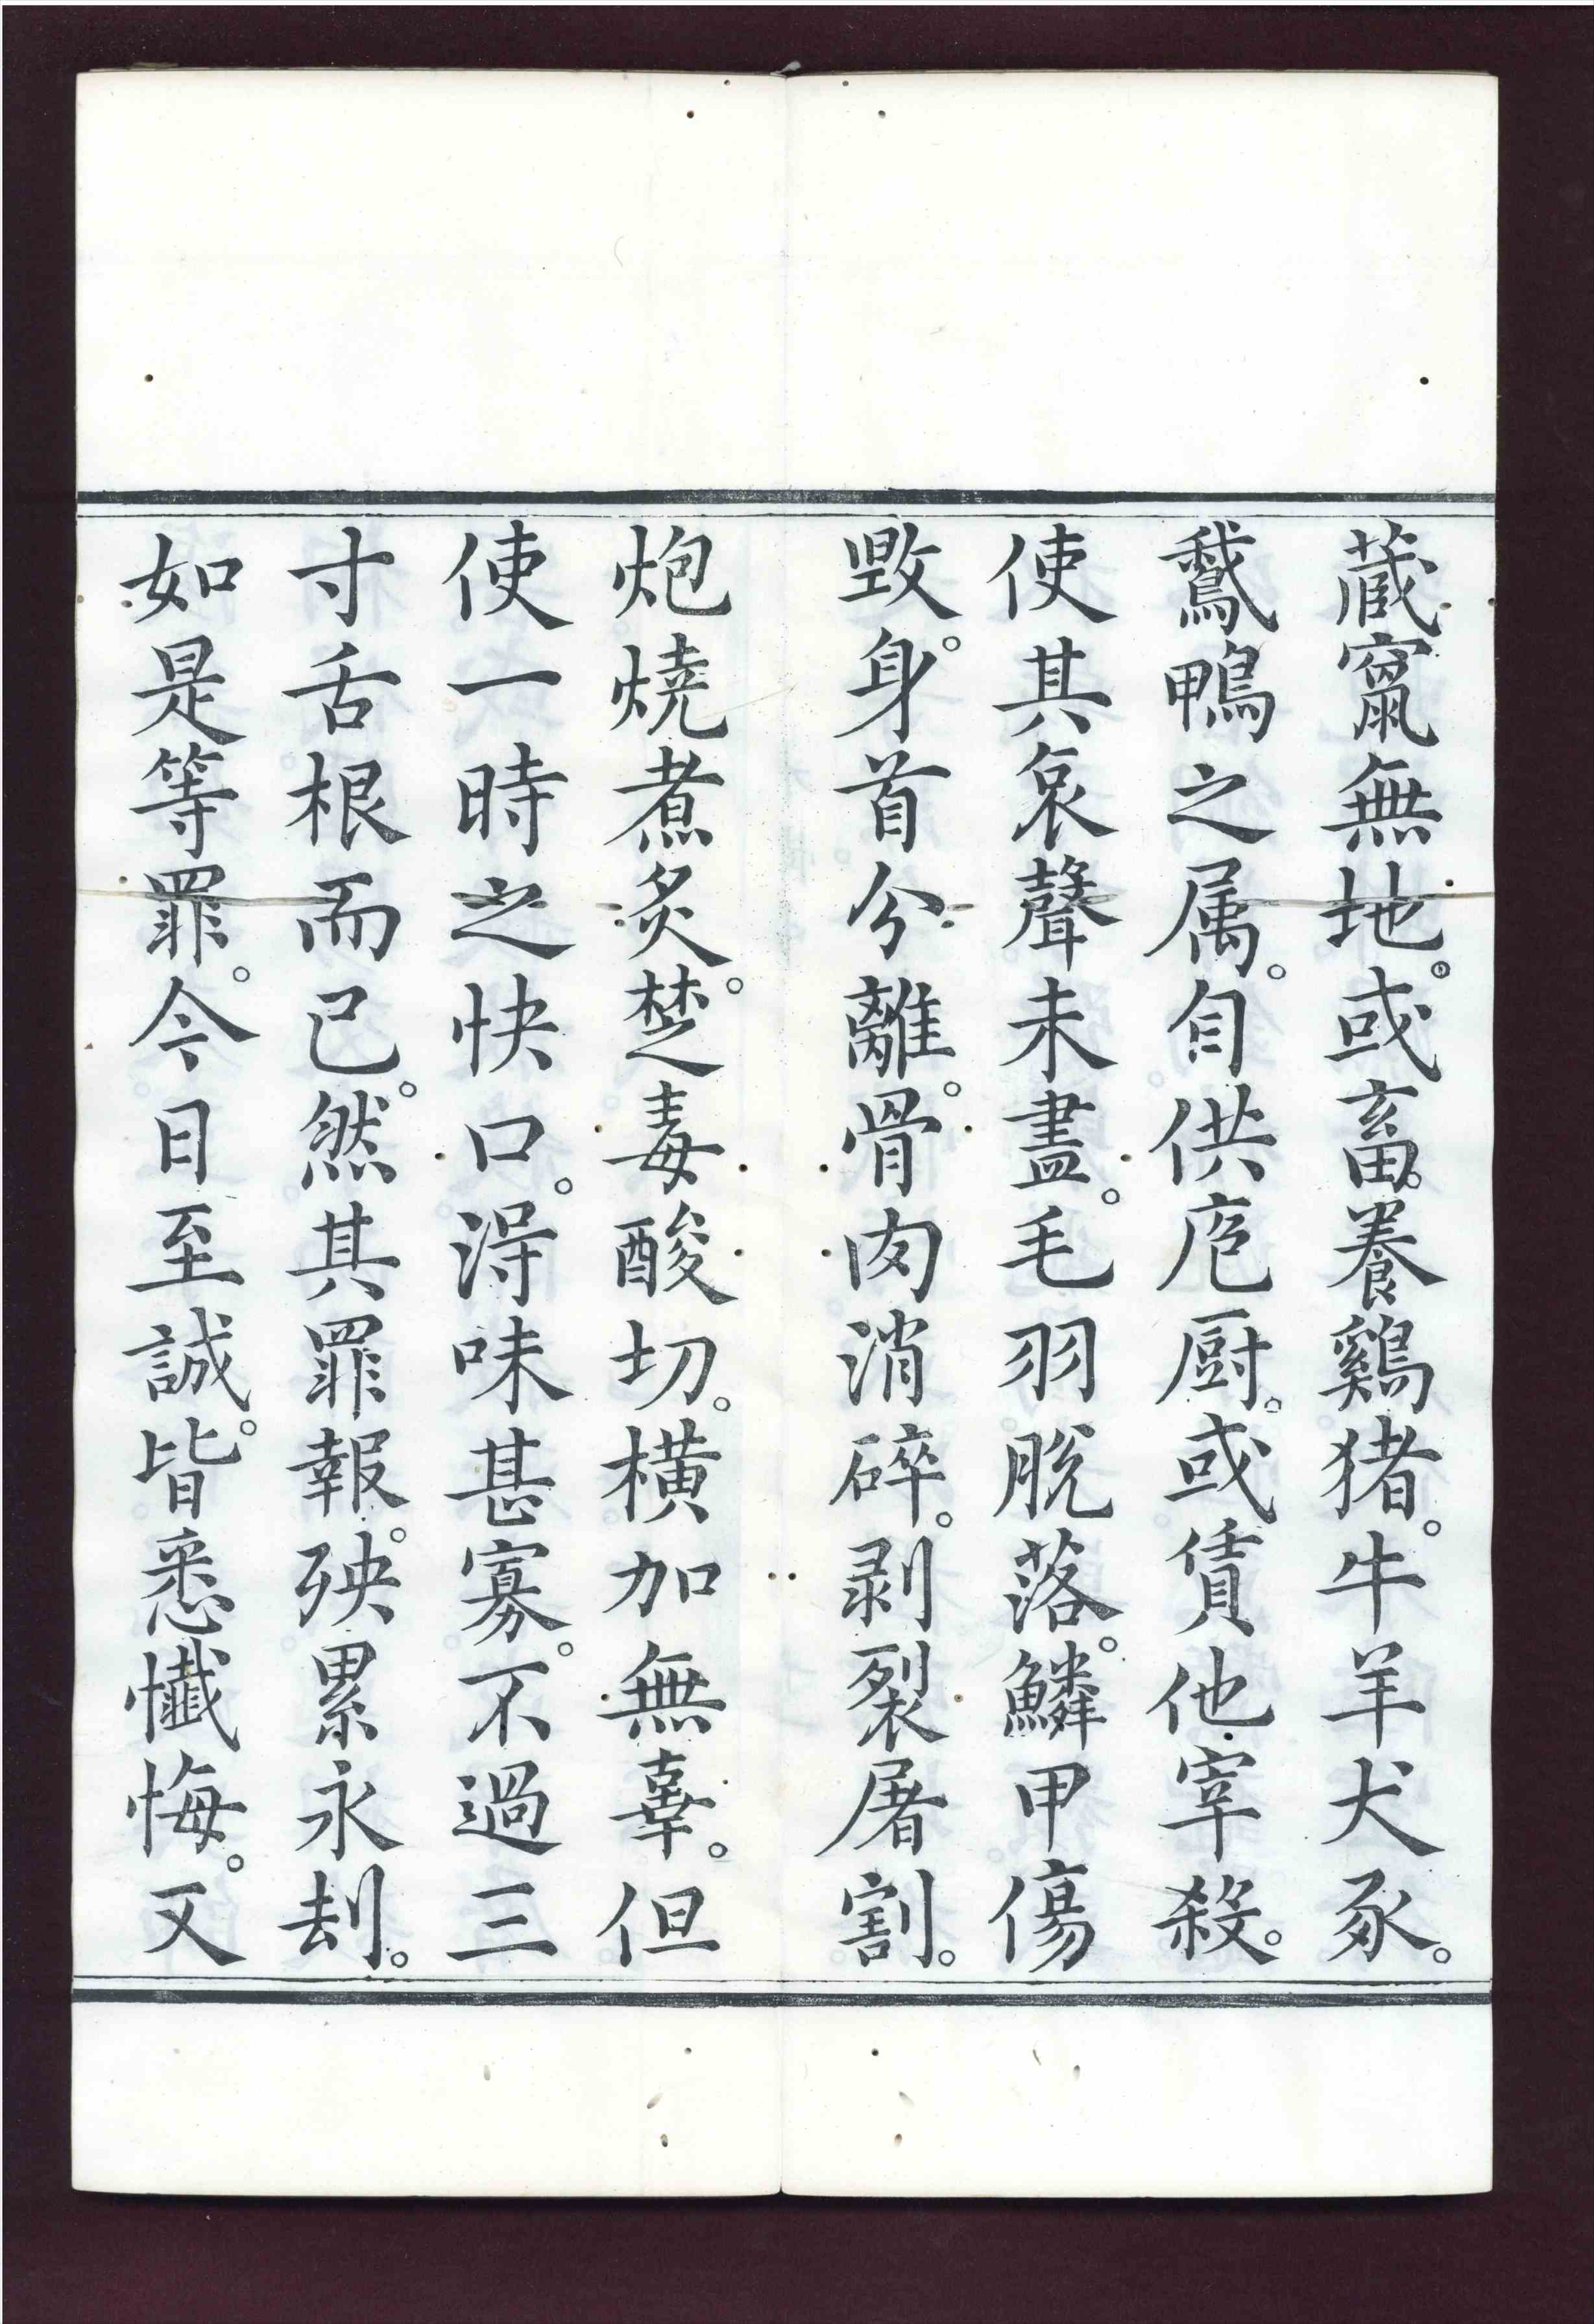 藏竄無地。或畜。養鷄猪。牛羊犬豕。
鵞鴨之属。自供庖厨。或賃他宰殺。
使其哀聲未盡。毛羽脫落。鱗甲傷
毀。身首分離。骨肉消碎。剥裂屠割。
炮燒煮炙。楚毒酸切。橫加無辜。但
使一時之快口。淂味甚寡。不過三
寸舌根而已。然其罪報。殃累永刦。
如是等罪。今日至誠。皆悉懺悔。又